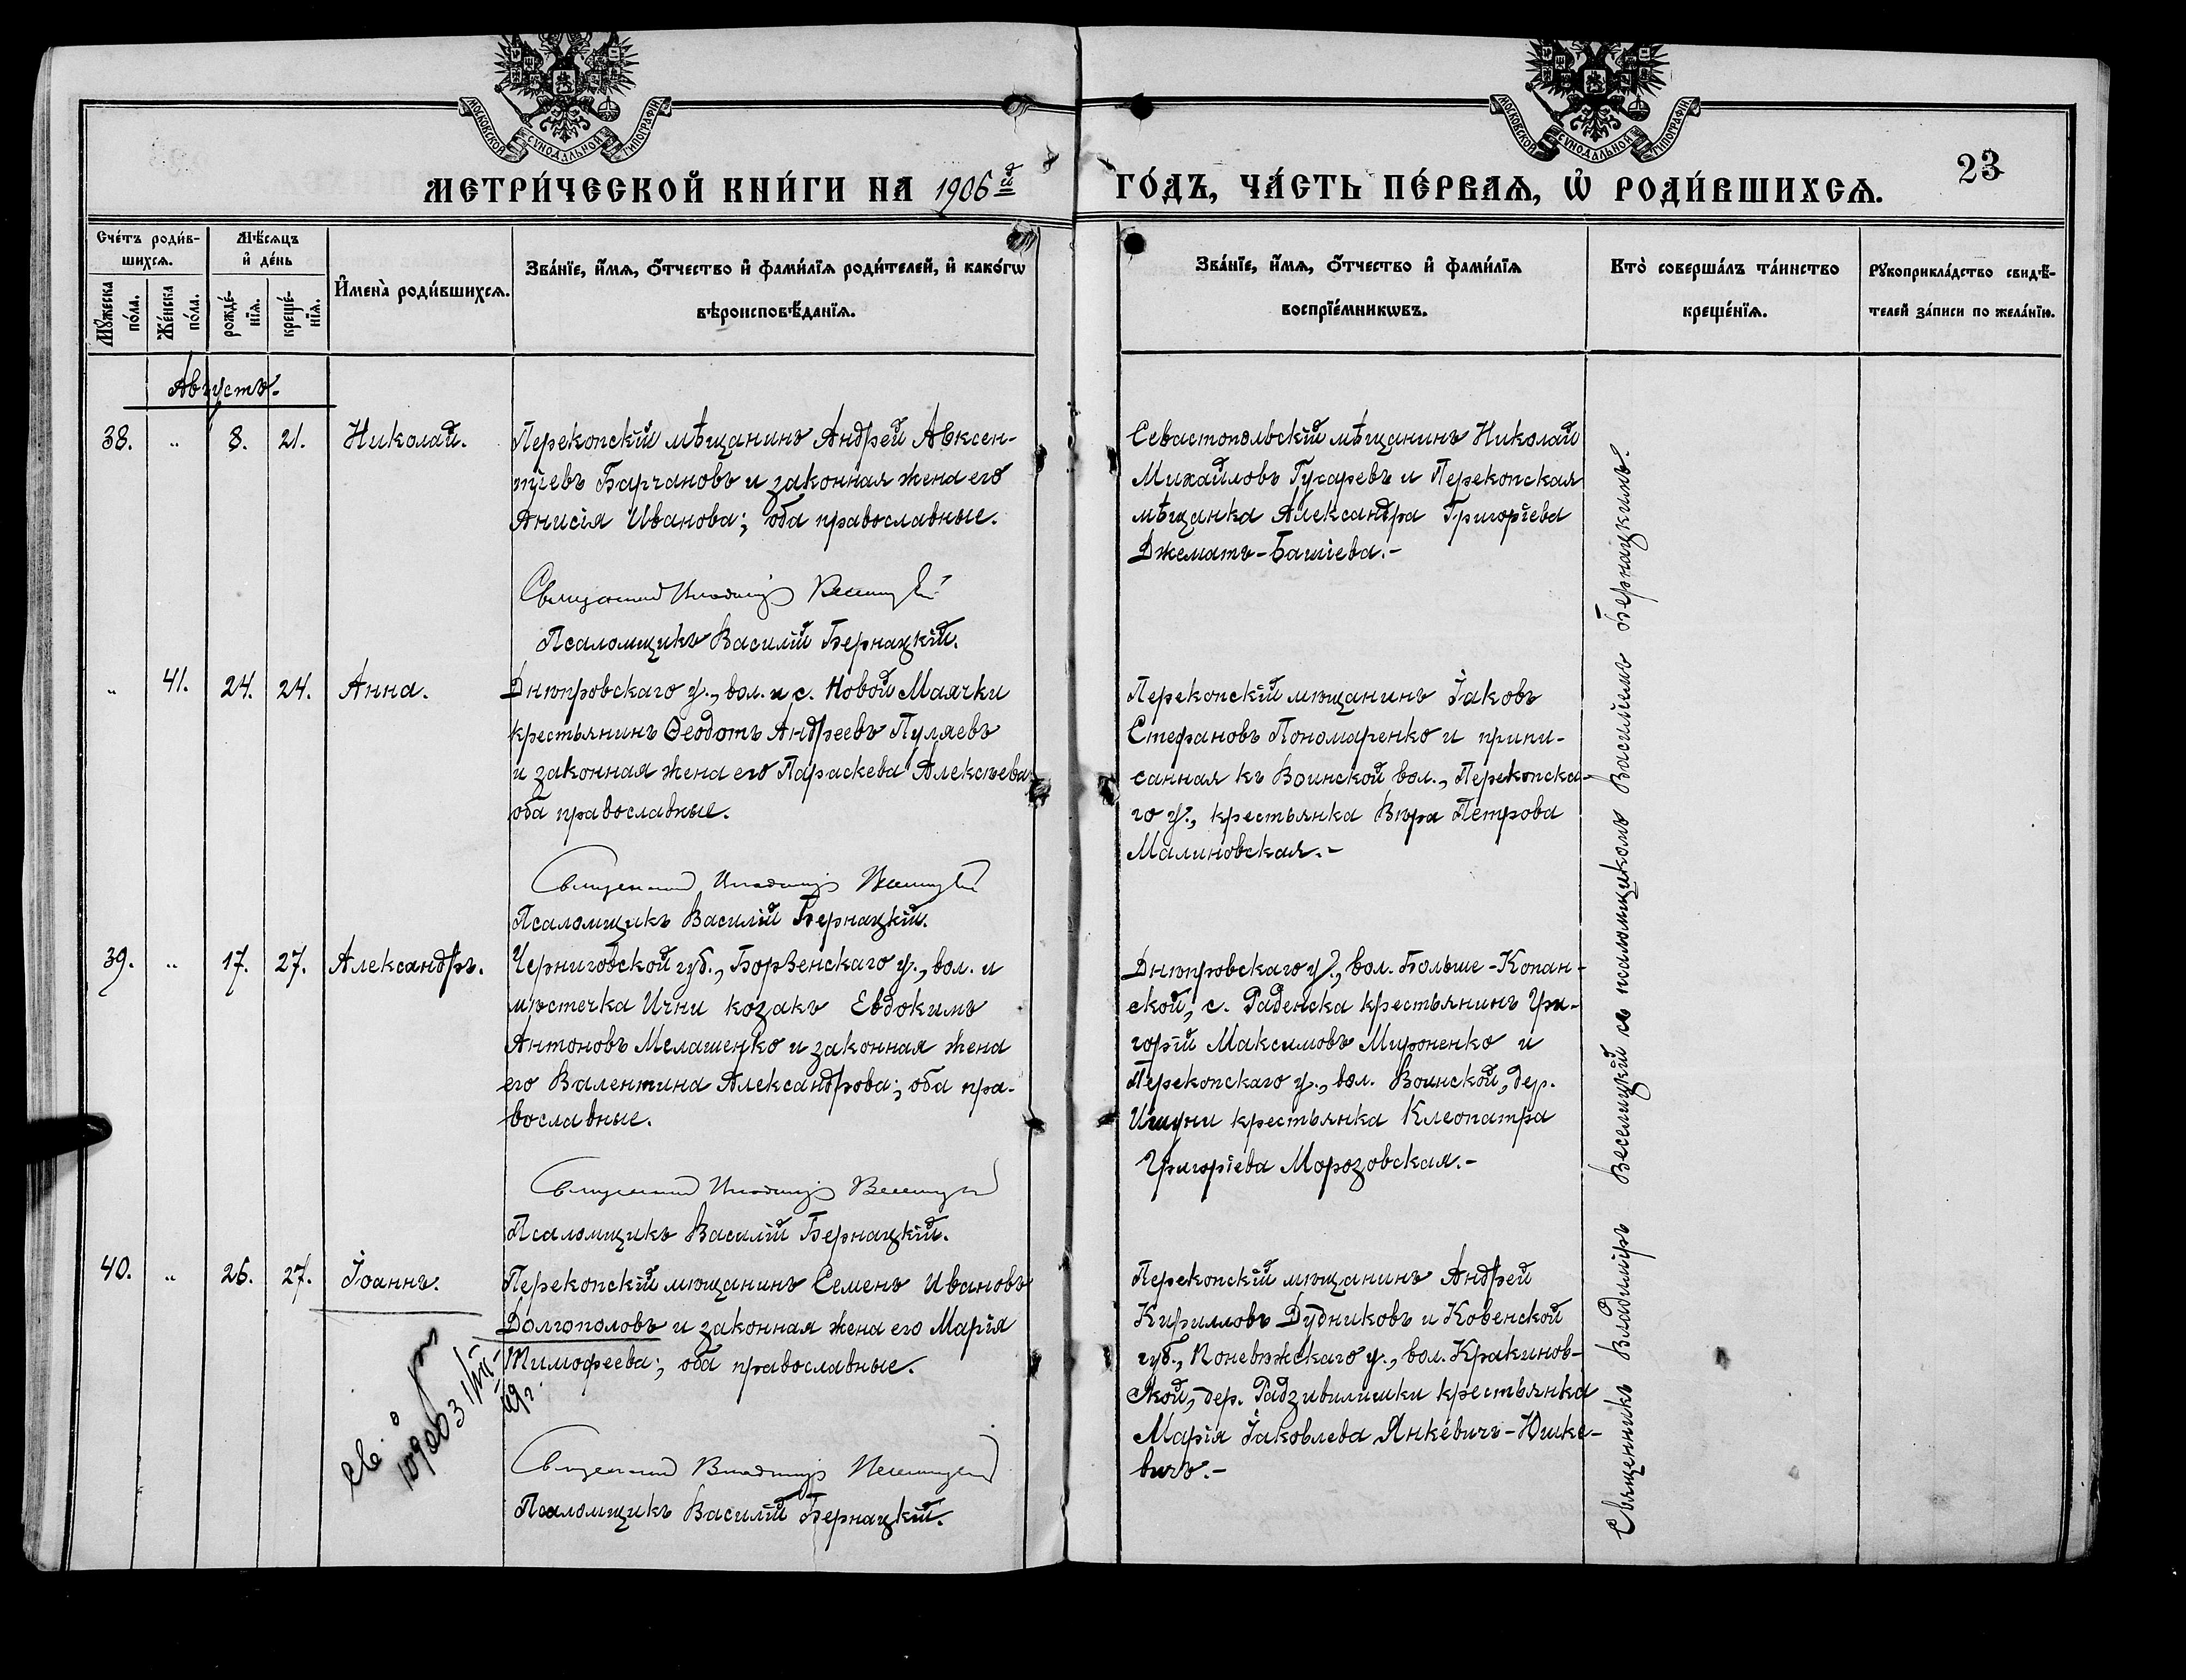 МОСКОВСКОЙ СѴНОДАЛЬНОЙ ТИПОГРАФІИ
МОСКОВСКОЙ СѴНОДАЛЬНОЙ ТИПОГРАФІИ
МЕТРИ́ЧЕСКОЙ КНИ́ГИ НА 1906 ой
ГО́ДЪ, ЧА́СТЬ ПЕ́РВАѦ, Ѡ҆ РОДИ́ВШИХСѦ.
23
Сче́тъ роди́в-
шихсѧ.
Мѣ́сѧцъ
и҆ де́нь
Мꙋ́жеска
по́ла.
Же́нска
по́ла.
рожде́-
нїѧ.
креще́-
нїѧ.
И҆мена̀ роди́вшихсѧ.
Зва́нїе, и҆́мѧ, ѻ҆́тчество и҆ фами́лїѧ роди́телей, и҆ како́гѡ
вѣроисповѣ́данїѧ.
Зва́нїе, и҆́мѧ, ѻ҆́тчество и҆ фами́лїѧ
воспрїе́мникѡвъ.
Кто̀ соверша́лъ та́инство
креще́нїѧ.
Рꙋкоприкла́дство свидѣ́-
телей за́писи по жела́нїю.
Августъ.
38. „ 8. 21. Николай.
Перекопскій мѣщанинъ Андрей Авксен-
тіевъ Барчановъ и законная жена его
Анисія Иванова; оба православные.
Священникъ Владиміръ Веселицкій
Псаломщикъ Василій Бернацкій.
Севастопольскій мѣщанинъ Николай
Михайловъ Гусаревъ и Перекопская
мѣщанка Александра Григоріева
Джематъ-Башіева.-
„ 41. 24. 24. Анна.
Днѣпровскаго у., вол. и с. Новой Маячки
крестьянинъ Ѳеодотъ Андреевъ Пуляевъ
и законная жена его Параскева Алексѣева
оба православные.
Священникъ Владиміръ Веселицкій
Псаломщикъ Василій Бернацкій.
Перекопскій мѣщанинъ Іаковъ
Стефановъ Пономаренко и припи-
санная къ Воинской вол., Перекопска-
го у., крестьянка Вѣра Петрова
Малиновская.-
39. „ 17. 27. Александръ.
Черниговской губ., Борзенскаго у., вол. и
мѣстечка Ични козакъ Евдокимъ
Антоновъ Мелашенко и законная жена
его Валентина Александрова; оба пра-
вославные.
Священникъ Владиміръ Веселицкій
Псаломщикъ Василій Бернацкій.
Днѣпровскаго у., вол. Больше-Копан-
ской, с. Раденска крестьянинъ Гри-
горій Максимовъ Мироненко и
Перекопскаго у., вол. Воинской, дер.
Ишуни крестьянка Клеопатра
Григоріева Морозовская.-
40. „ 26. 27. Іоаннъ.
Перекопскій мѣщанинъ Семенъ Ивановъ
Долгополовъ и законная жена его Марія
Тимофеева; оба православные.
Священникъ Владиміръ Веселицкій
Псаломщикъ Василій Бернацкій.
Перекопскій мѣщанинъ Андрей
Кирилловъ Дудниковъ и Ковенской
губ., Поневѣжскаго у., вол. Кракинов-
ской, дер. Радзивилишки крестьянка
Марія Іаковлева Янкевичъ-Юшке-
вичъ.-
Священникъ Владиміръ Веселицкій съ псаломщикомъ Василіемъ Бернацкимъ.